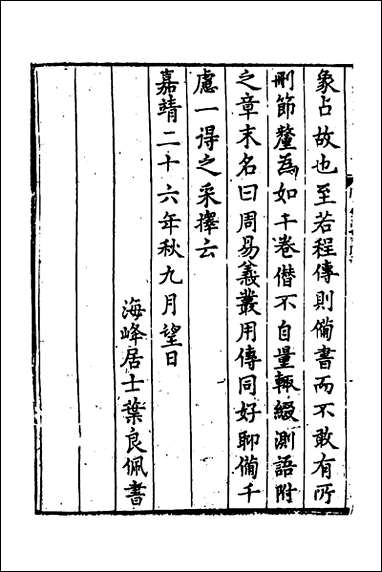 象占故也至若程傳則備書而不敢有所
刪節釐為如干卷僣不自量輙綴測語附
之章末名曰周易義叢用傳同好聊備千
慮一得之采擇云
嘉靖二十六年秋九月望日
海峰居士葉良佩書